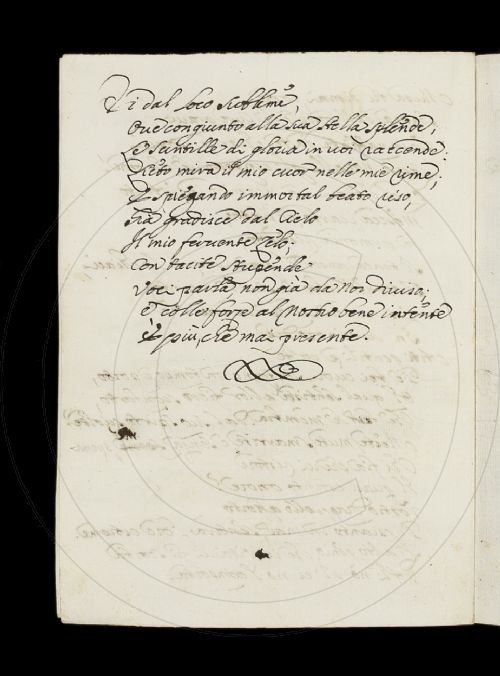 Di dal loco sublime,
Ove congiunto alla sua stella splende,
Le scintille di gloria in voi raccende.
Lieto mira il mio cuor nelle mie rime;
E spiegando immortal beato riso,
Già gradisce dal Cielo
Il mio fervente zelo;
Con tacite stupende
Voci parla non già da noi diviso;
E colle forze al nostro bene intente
È più, che mai presente.